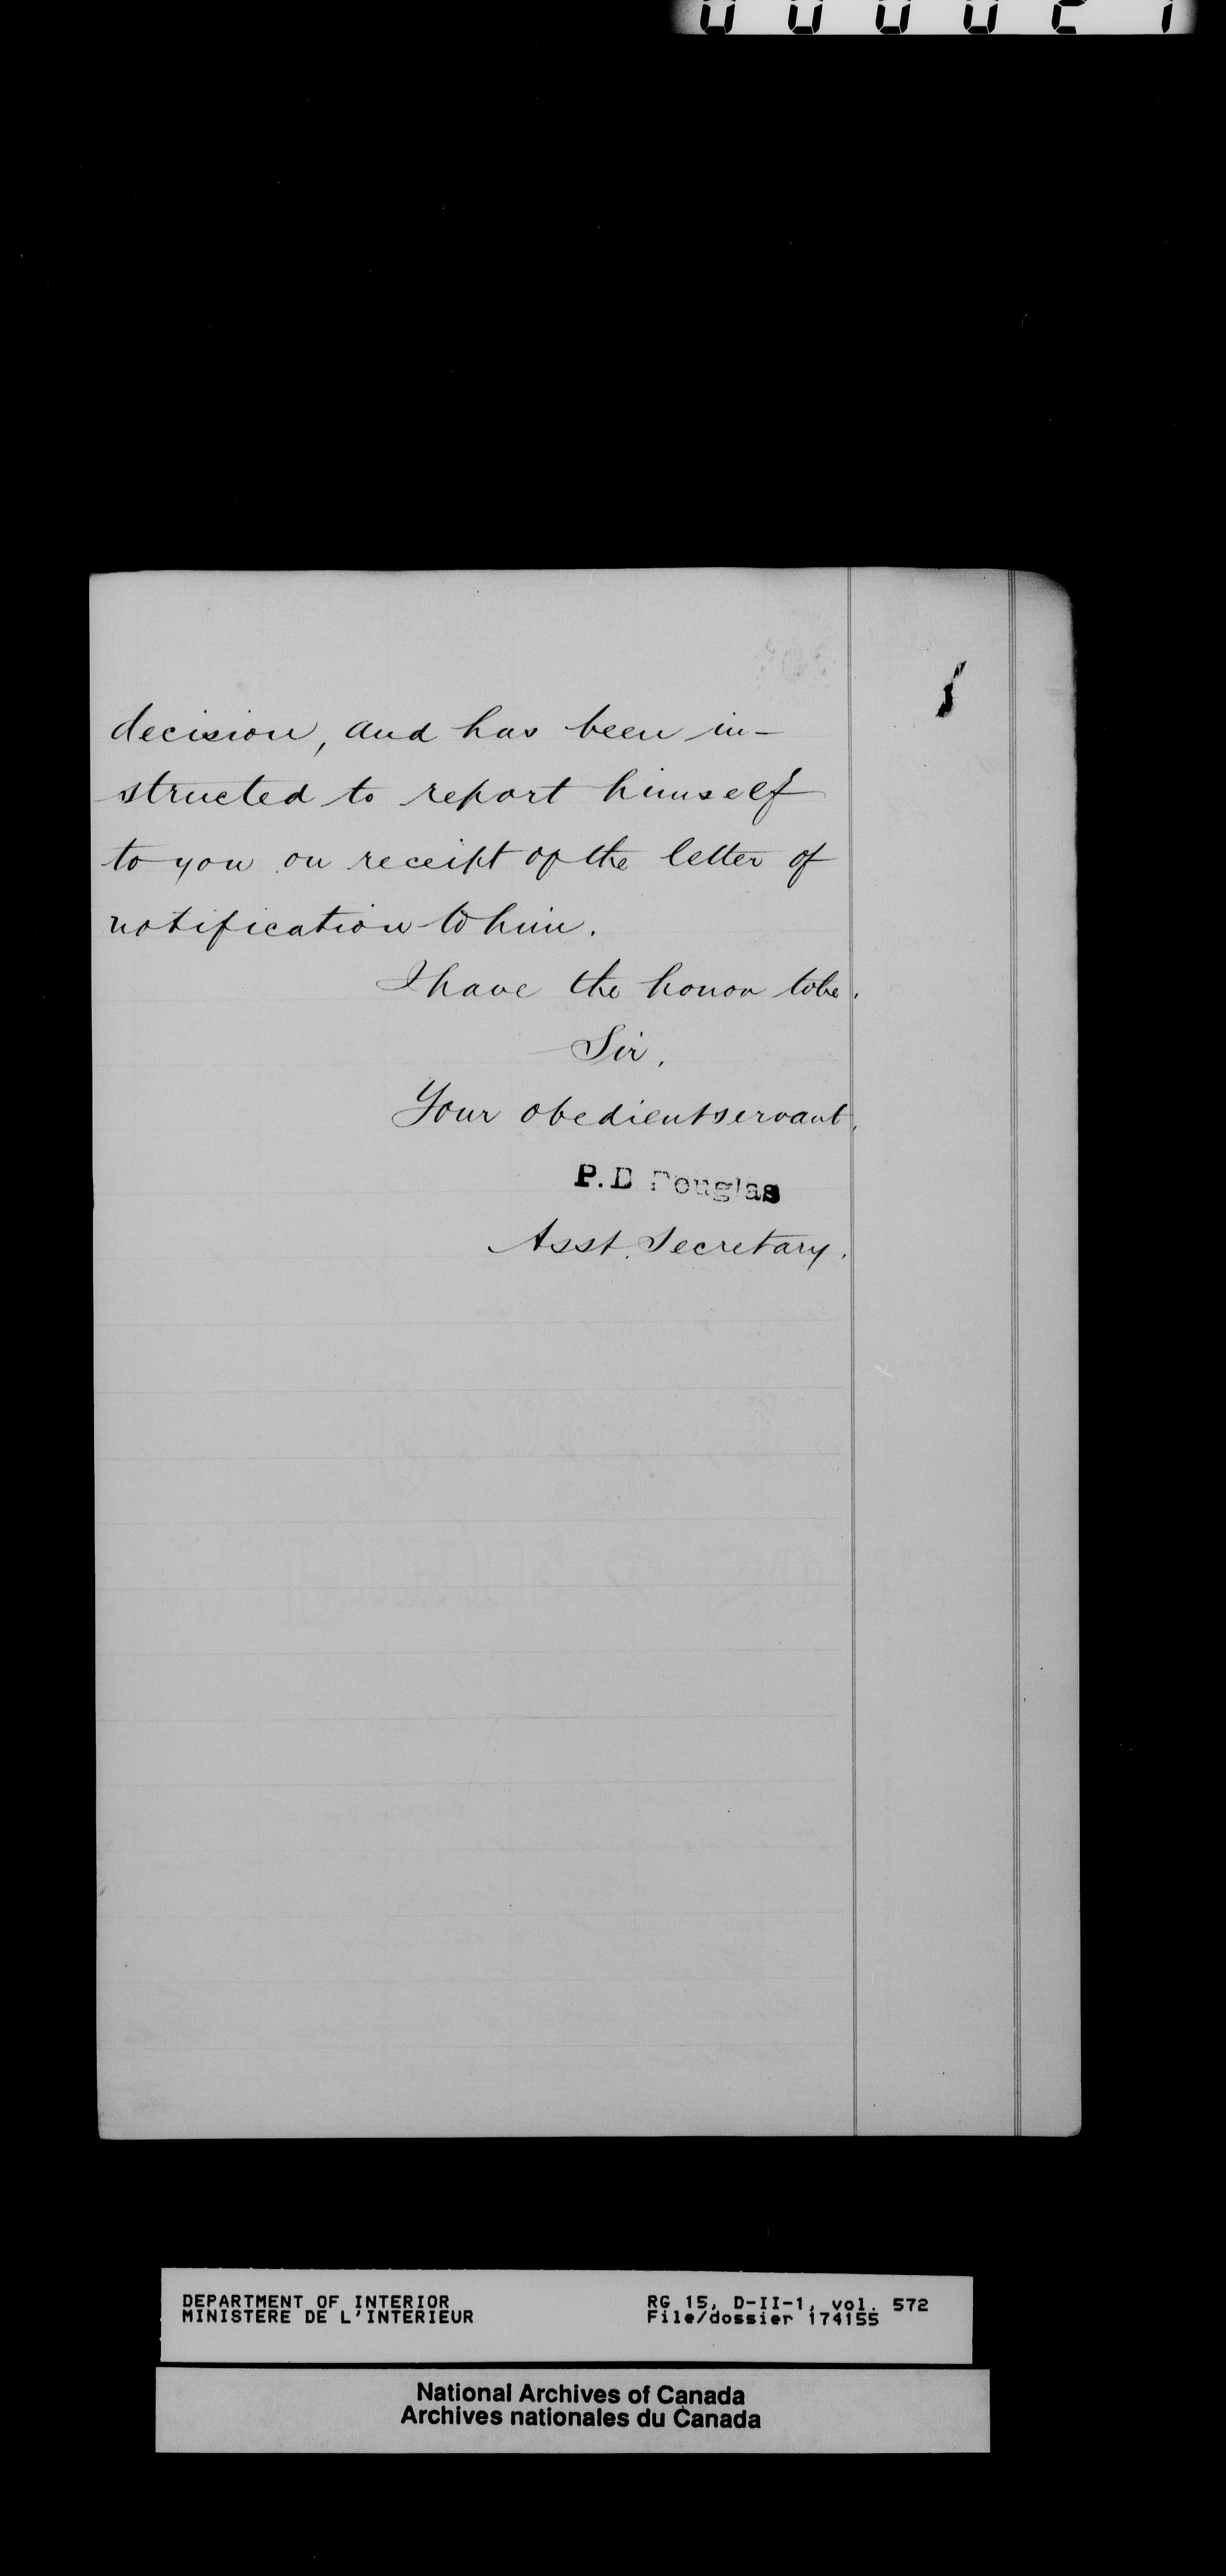 000021
decision, and has been in-
structed to report himself
to you on receipt of the letter of
notification to him.
I have the honor to be,
Sir,
Your obedient servant,
P.D Douglas
Asst. Secretary.
DEPARTMENT OF INTERIOR
MINISTERE DE L'INTERIEUR
RG 15, D-II-1, vol. 572
File/dossier 174155
National Archives of Canada
Archives nationales du Canada